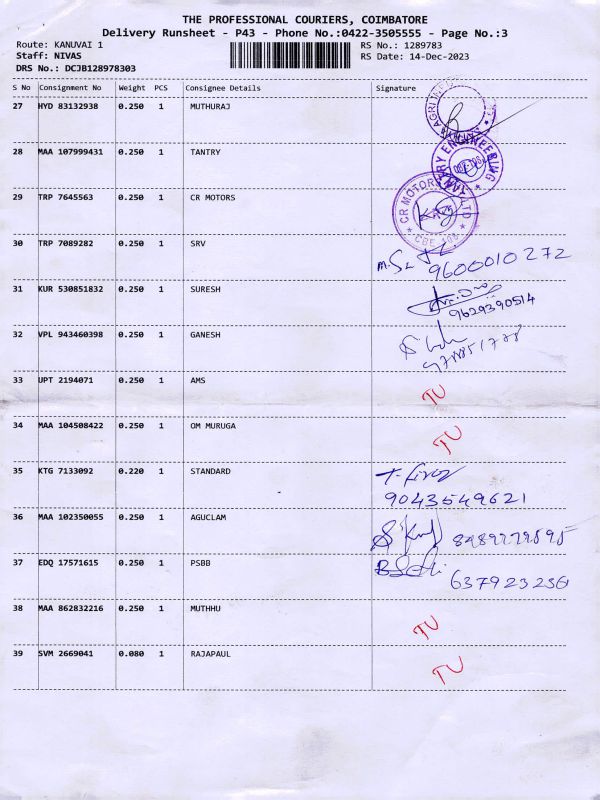 THE PROFESSIONAL COURIERS, COIMBATORE
Delivery Runsheet - P43 - Phone No.:0422-3505555 - Page No.:3
Route: KANUVAI 1 RS No.: 1289783
Staff: NIVAS RS Date: 14-Dec-2023
DRS No.: DCJB128978303
S No Consignment No Weight PCS Consignee Details Signature
27 HYD 83132938 0.250 1 MUTHURAJ
28 MAA 107999431 0.250 1 TANTRY ENGINEERING
29 TRP 7645563 0.250 1 CR MOTORS CR MOTORS
30 TRP 7089282 0.250 1 SRV 9600010272
31 KUR 530851832 0.250 1 SURESH 9629390514
32 VPL 943460398 0.250 1 GANESH
33 UPT 2194071 0.250 1 AMS TU
34 MAA 104508422 0.250 1 OM MURUGA TU
35 KTG 7133092 0.220 1 STANDARD
9043549621
36 MAA 102350055 0.250 1 AGUCLAM
37 EDQ 17571615 0.250 1 PSBB
38 MAA 862832216 0.250 1 MUTHHU TU
39 SVM 2669041 0.080 1 RAJAPAUL TU